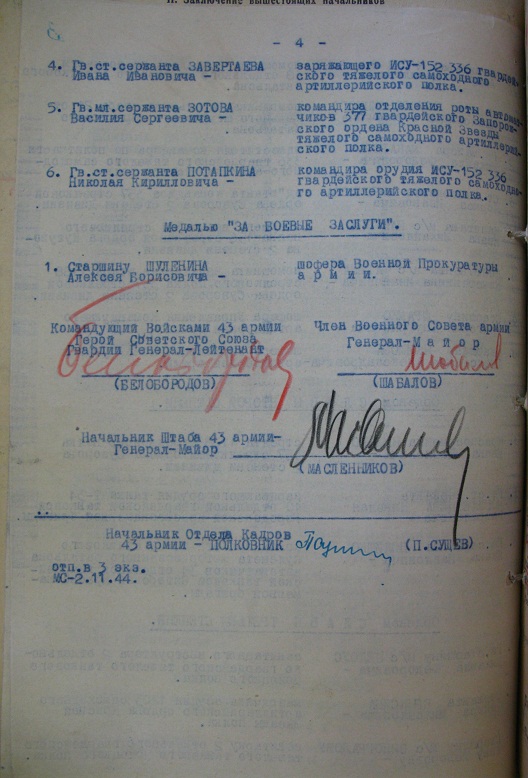 II. Заключение вышестоящих начальников
- 4 -
4. Гв.ст.сержанта ЗАВЕРТАЕВА
Ивана Ивановича -
заряжающего ИСУ-152 336 гвардей-
ского тяжелого самоходного
артиллерийского полка.
5. Гв.мл.сержанта ЗОТОВА
Василия Сергеевича -
командира отделения роты автомат-
чиков 377 гвардейского Запорож-
ского ордена Красной Звезды
тяжелого самоходного артиллерий-
ского полка.
6. Гв.ст.сержанта ПОТАПКИНА
Николая Кирилловича -
командира орудия ИСУ-152 336
гвардейского тяжелого самоходно-
го артиллерийского полка.
Медалью "ЗА БОЕВЫЕ ЗАСЛУГИ".
1. Старшину ШУЛЕНИНА
Алексея Борисовича -
шофера Военной Прокуратуры
армии.
Командующий Войсками 43 армии
Герой Советского Союза
Гвардии Генерал-Лейтенант
(БЕЛОБОРОДОВ)
Член Военного Совета армии
Генерал-Майор
(ШАБАЛОВ)
Начальник Штаба 43 армии-
Генерал-Майор
(МАСЛЕННИКОВ)
Начальник Отдела Кадров
43 армии - ПОЛКОВНИК
(П.СУЩЕВ)
отп.в 3 экз.
МС-2.11.44.